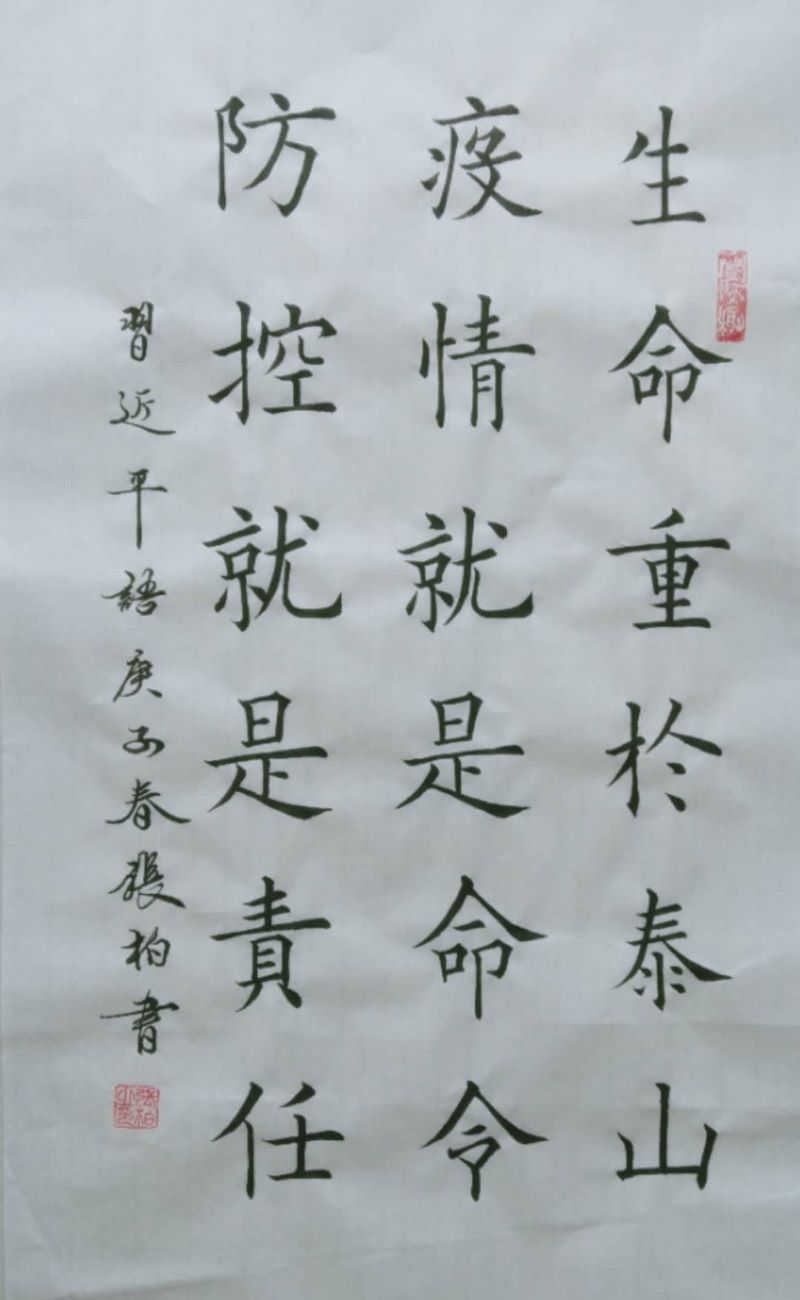 生命重於泰山
疫情就是命令
防控就是責任
習近平語庚子春張柏書